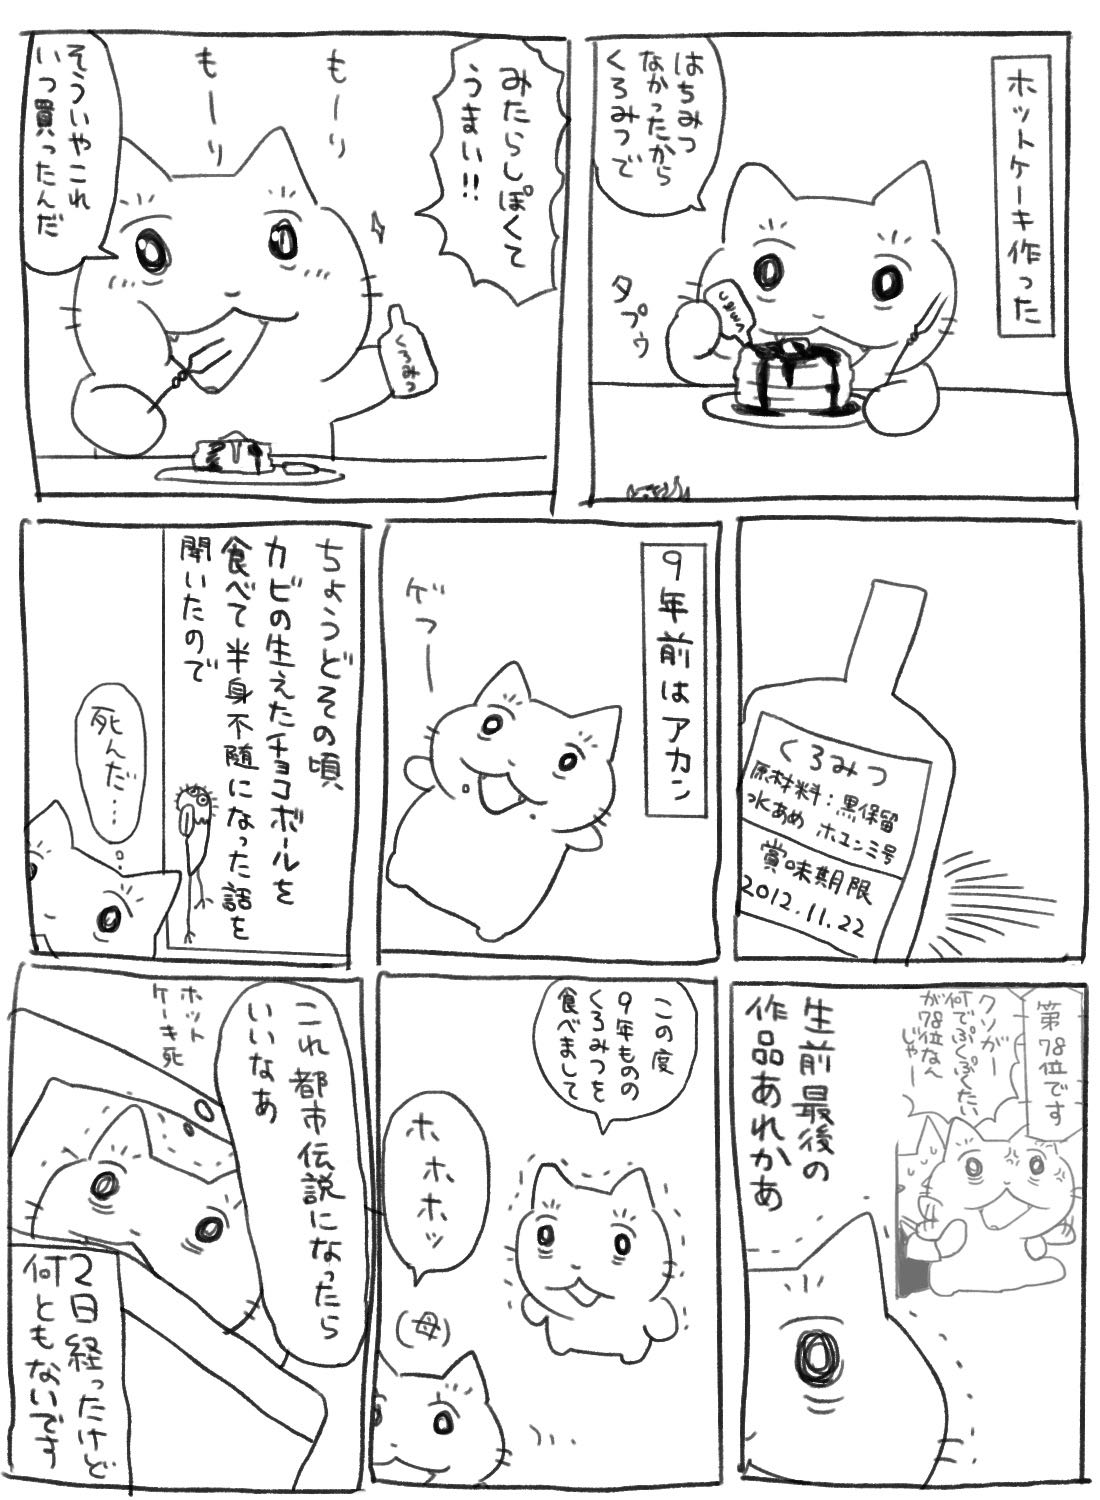 ホットケーキ作った
はちみつ
なかったから
くろみつで
くろみつ
タプゥ
みたらしぽくて
うまい!!
もーり
もーり
くろみつ
そういやこれ
いつ買ったんだ
くろみつ
原材料:黒保留
水あめ ホユン三号
賞味期限
2012.11.22
9年前はアカン
ゲフー
ちょうどその頃
カビの生えたチョコボールを
食べて半身不随になった話を
聞いたので
死んだ…
第78位です
クソがー
何でぷくぷくたい
が78位なん
じゃー
生前最後の
作品あれかあ
この度
9年ものの
くろみつを
食べまして
ホホホッ
(母)
これ都市伝説になったら
いいなあ
ホット
ケーキ死
2日経ったけど
何ともないです